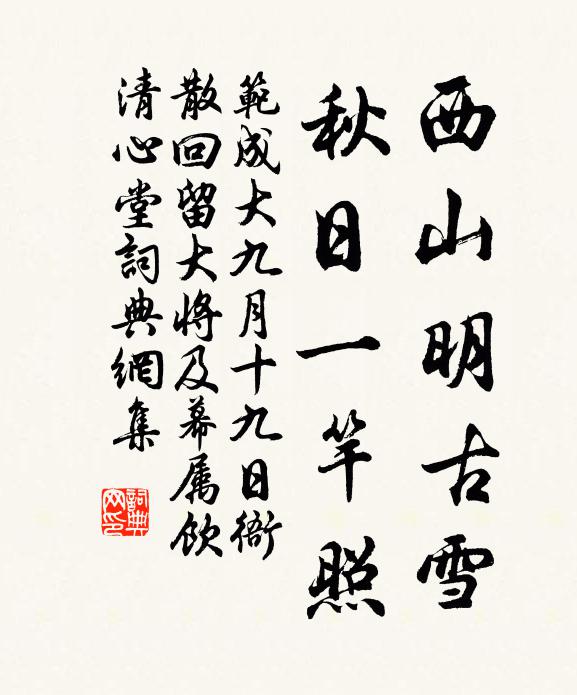 西山明古雪
秋日一竿照
範成大九月十九日衙
散回留大将及幕属飲
清心堂詞典網集
詞典网印